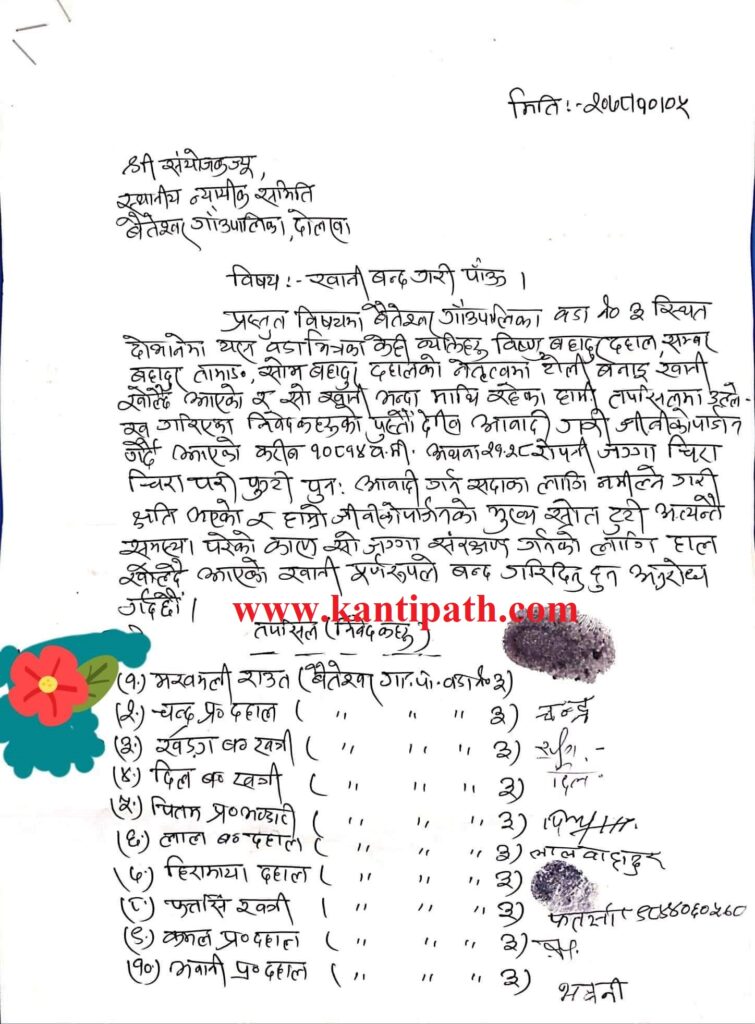 मिति:- २०७८।१०।०५
श्री संयोजकज्यू,
स्थानीय न्यायीक समिति
बैतेश्वर गाँउपालिका, दोलखा
विषय:- खानी बन्द गरी पाँऊ ।
प्रस्तुत विषयमा बैतेश्वर गाँउपालिका वडा नं ३ स्थित
दोभानेमा यस वडाभित्रका केही व्यक्तिहरु विष्णु बहादुर दहाल,
बहादुर तामाङ, सोम बहादुर दहालको नेतृत्वमा टोली बनाइ खानी
खोल्दै आएको र सो खानी भन्दा माथि रहेका हामी तपसिलमा उल्ले-
ख गरिएका निवेदकहरुको पुस्तौं देखि आवादी गरी जीवीकोपार्जन
गर्दै आएको करीब १०८१४ व.मी. अथवा २१.२८ रोपनी जग्गा चिरा
चिरा परी फुटी पुन: आवादी गर्न सदाका लागि नमील्ने गरी
क्षति भएको र हाम्रो जीवीकोपार्जनको मुख्य स्रोत टुटी अत्यन्तै
समस्या परेको कारण सो जग्गा संरक्षण गर्नको लागि हाल
खोल्दै आएको खानी पूर्णरूपले बन्द गरिदिनु हुन अनुरोध
गर्दछौं ।
www.kantipath.com
तपसिल (निवेदकहरु)
(१.) मखमली राउत (बैतेश्वर गा.पा. वडा नं ३)
(२.) चन्द्र प्र० दहाल ( " " " ३) चन्द्र
(३.) खड्ग ब० खत्री ( " " " ३)
(४.) दिल ब० खत्री ( " " " ३) दिल
(५.) पितम प्र० भण्डारी ( " " " ३)
(६.) लाल ब० दहाल ( " " " ३) लाल बाहादुर
(७.) हिरामाया दहाल ( " " " ३)
(८.) फत्तसिं खत्री ( " " " ३)
(९.) कमल प्र० दहाल ( " " " ३)
(१०.) भवानी प्र० दहाल ( " " " ३) भवनी